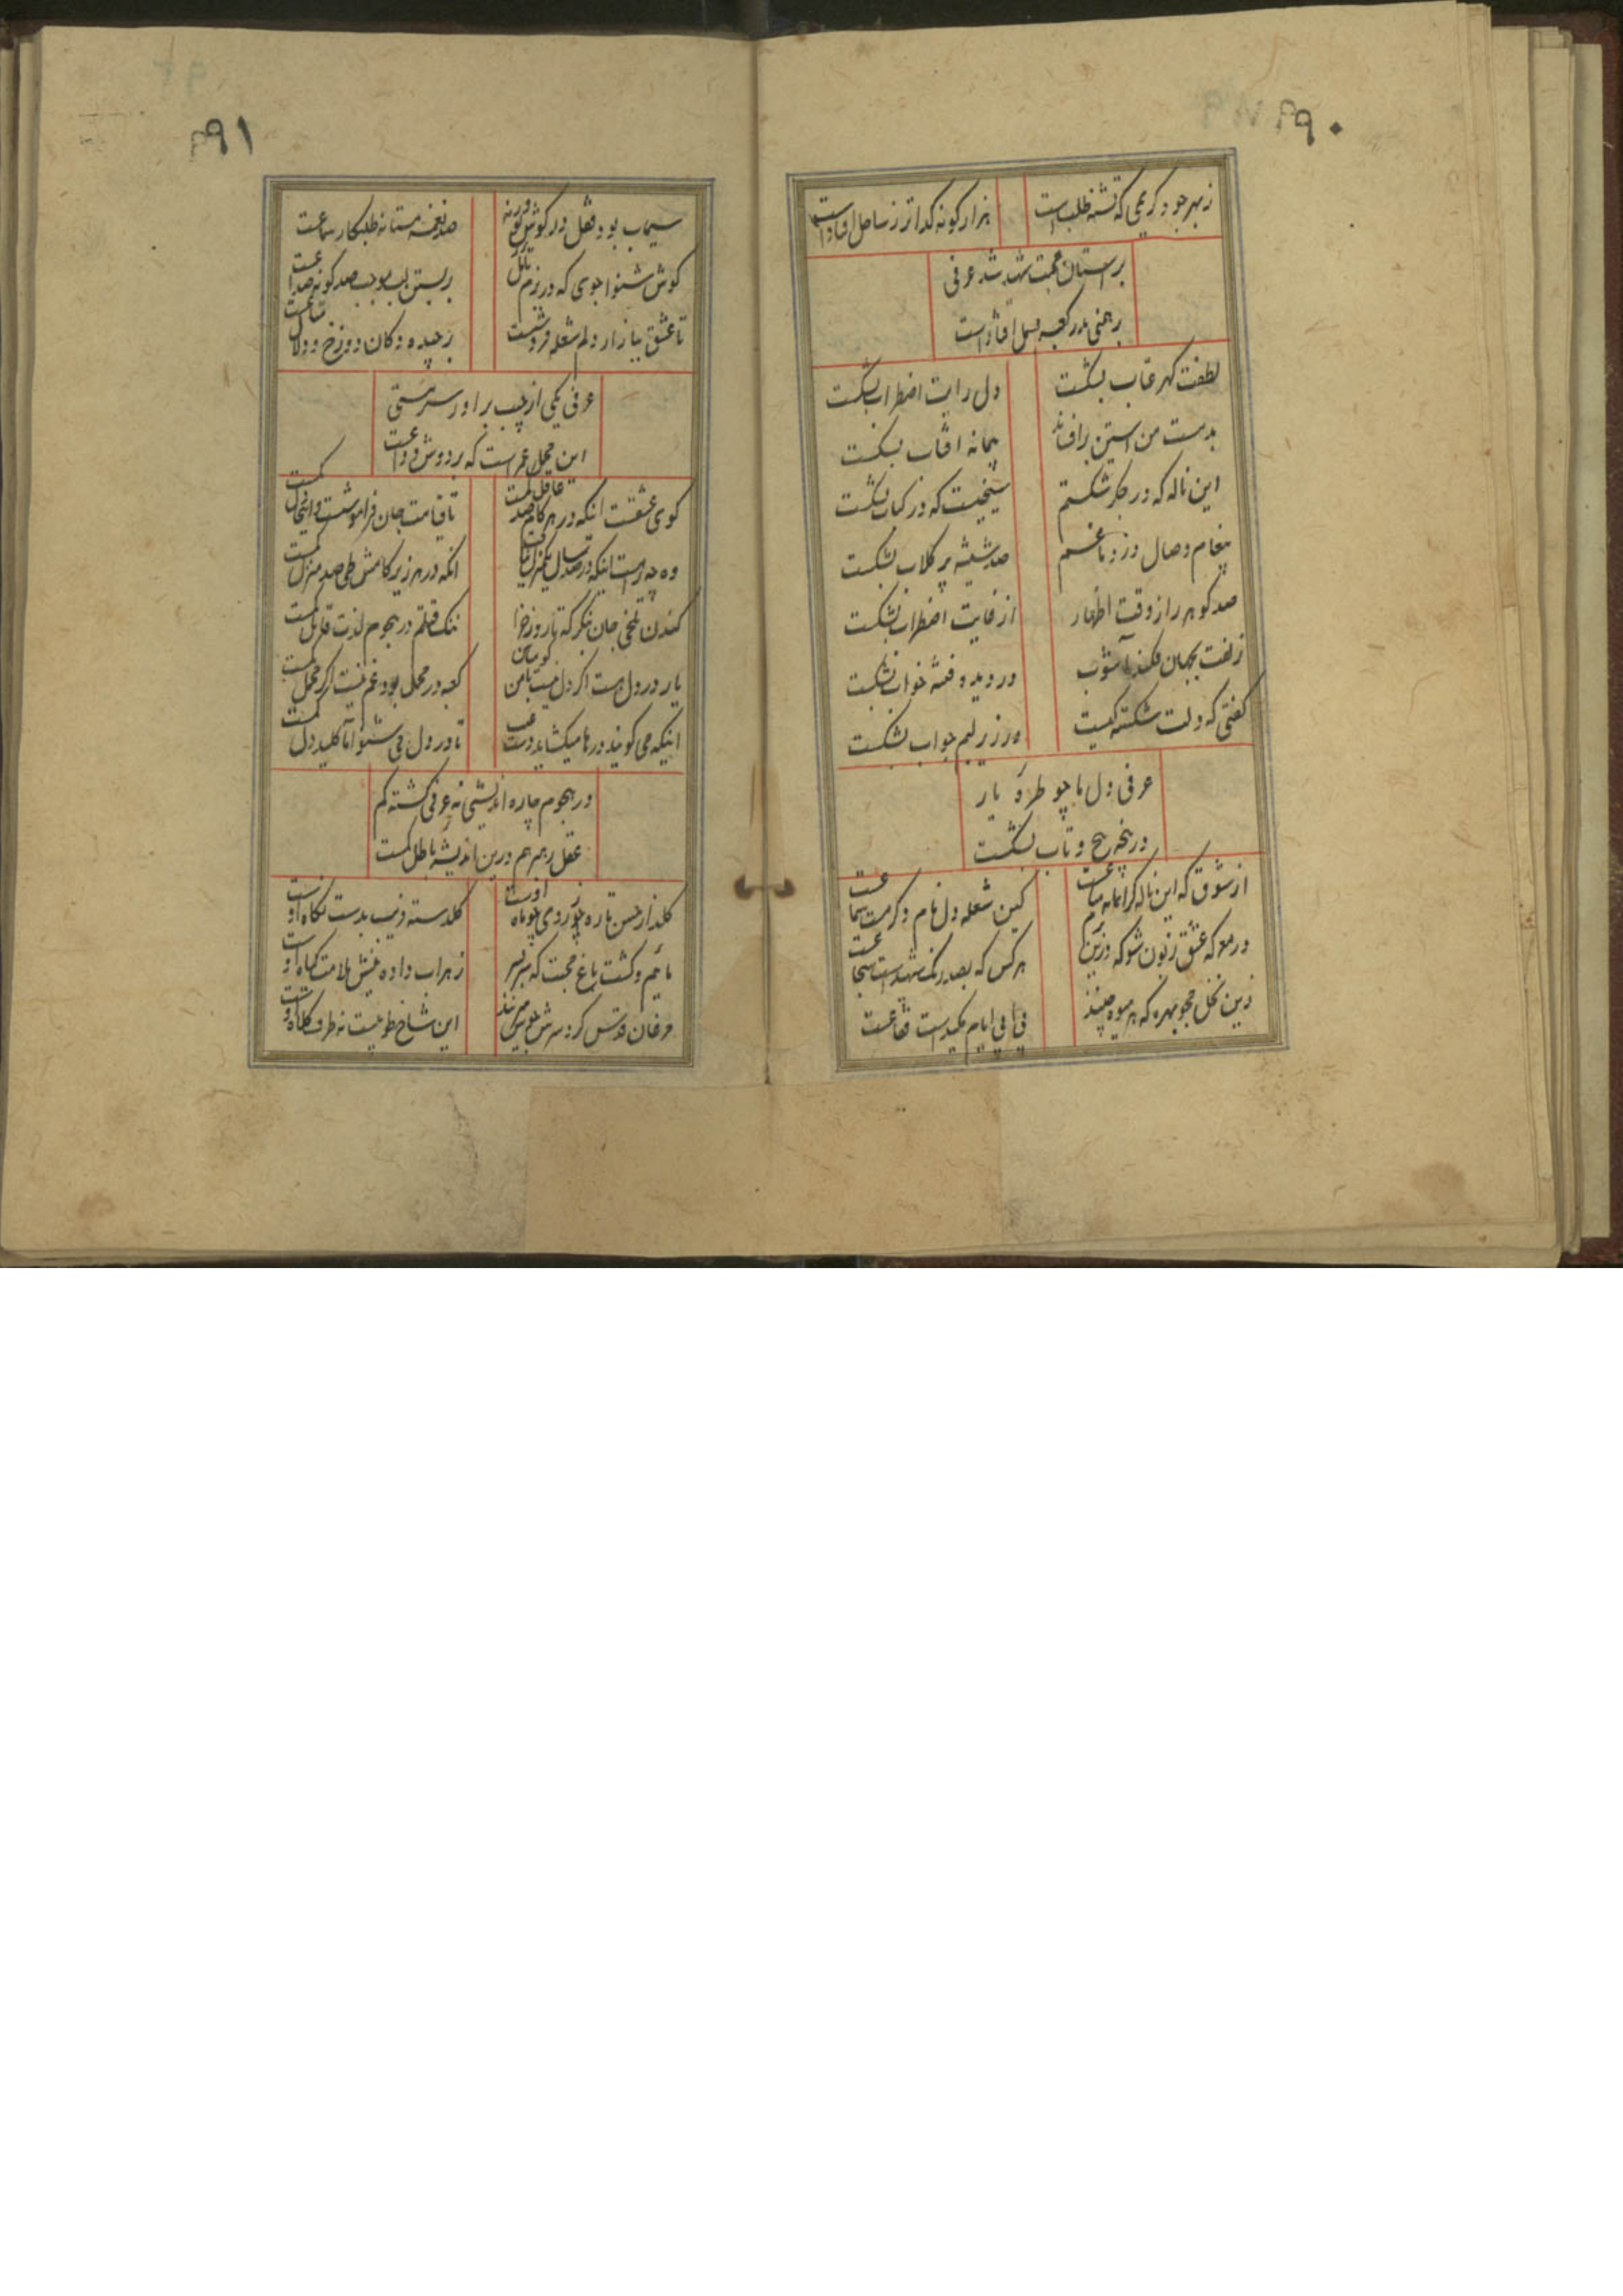 ۲۹۰
ز بهر جود کریمی که تشنه طلب است
هزار گونه گدا تر ز ساحل افتادست
بر استان محبت شهید شد عرفی
برهمنی بدر کعبه بسمل افتادست
لطفت کهر عتاب بشکست
دل رایت اضطراب بشکست
بدست من استین برافشاند
پیمانه افتاب بشکست
این ناله که در جگر شکستم
سیخیست که در کباب بشکست
پیغام وصال زد بداغم
صد شیشه پر کلاب بشکست
صد گوهر راز وقت اظهار
از غایت اضطراب بشکست
زلفت بجهان فکند آشوب
در دیده فتنه خواب بشکست
گفتی که دلت شکسته کیست
در زیر لبم جواب بشکست
عرفی دل ما چو طره یار
در پنجه پیچ و تاب بشکست
از شوق که این ناله گرانمایه متاعست
کین شعله دل نام و کرمت
در معرکه عشق زبون شو که درین رزم
هر کس که بصد رنگ شهیدست شجاعست
زین نخل مجو بهره که هر میوه چیند
ایام است
۲۹۱
سیماب بود قفل در گوش تو ورنه
صد نغمه مستانه طلبکار سماعست
گوش شنوا جوی که در بزم تامل
بر بستن لب موجب صد گونه صداعست
تا عشق ببازار دلم شعله فروشست
بر چیده دکان دوزخ و
عرفی یکی از جیب براور سر مستی
این محمل عمر است که بر دوش وداعست
کوی عشقست اینکه در هر گام صد عاقل گمست
تا قیامت جان فراموشست و اینجا دل گمست
وه چه راهست اینکه در صد سال یکمنزل
انکه در هر زیر گامش طی صد منزل گمست
کندن تلخی جان بنگر که تا روز جزا
ننگ قتلم در هجوم لذت قاتل گمست
یار در دل هست اگر دل نیست با من گو مباش
کعبه در محمل بود غم نیست گر محمل گمست
اینکه می گویند درها میکشاید دوست
تا در دل می شنو اما کلید دل گمست
در هجوم چاره اندیشی نه عرفی گشته گم
عقل رهبر هم درین اندیشه باطل گمست
گلزار حسن تازه ز روی چو ماه اوست
گلدسته فریب بدست نگاه اوست
مائیم و کشت باغ محبت که سر بسر
زهراب داده نیش ملامت گیاه اوست
مرغان قدس گرد سرش
این شاخ طوبیست نه طرف کلاه اوست